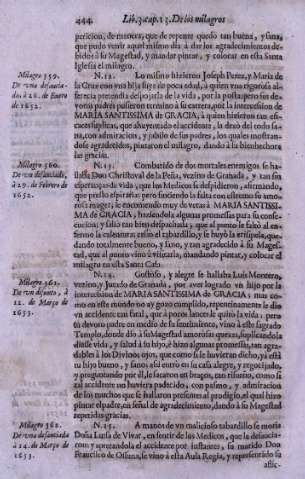 444. Lib. 3. cap. 13. De los milagros
peticion, de manera, que de repente quedo tan buena, y sana,
que pudo venir aquel mismo dia à dar los agradecimientos debi-
dos à su Magestad, y mandar pintar, y colocar en esta Santa
Iglesia el milagro.
Milagro 359.
De vna desaucia-
da, à 26. de Enero
de 1652.
N. 12. Lo mismo hizieron Joseph Perez, y Maria de
la Cruz con vna hija suya de poca edad, à quien vna rigurosa al-
ferecia pretendia despojarla de la vida, por la
vidos padres pusieron termino à su carrera, por la intercession de
MARIA SANTISSIMA de GRACIA, à quien hizieron tan efi-
caces suplicas, que ahuyentado el accidente, la dexò del todo sa-
na, con admiracion, y jubilo de sus padres, los quales mostran-
dose agradecidos, pintaron el milagro, dando à la bienhechora
las gracias.
Milagro 360.
De vn desauciado,
à 29. de Febrero de
1652.
N. 13. Combatido de dos mortales enemigos se ha-
llaba Don Christoval de la Peña, vezino de Granada, y tan sin
esperança de vida, que los Medicos se despidieron, afirmando,
que presto espiraria: pero sintiendo la falta con estremo su amo-
rosa muger, le encomendò muy de veras à MARIA SANTISSI-
MA de GRACIA, haziendola algunas promessas para su conse-
cucion, y saliò tan bien despachada, que al punto le faltò al en-
fermo la calentura al tabardillo, y le huyò la
dando totalmente bueno, y sano, y tan agradecido à su Mages-
tad, que al punto vino à visitarla, mandar pintar, y colocar el
milagro en esta Santa Casa.
Milagro 361.
De vn difunto, à
12. de Março de
1653.
N. 14. Gustoso, y alegre se hallaba Luis Montero,
vezino, y Jurado de Granada, por aver logrado vn hijo por la
intercession de MARIA SANTISSIMA de GRACIA; mas co-
mo en este mundo no ay gozo cumplido, repentinamente le diò
vn accidente tan fatal, que à pocos lances le quitò la vida; pero
su devoto padre en medio de su sentimiento, vino à este sagrado
Templo, donde diò à su Magestad amorosas quexas, suplicandola
diesse vida, y salud à su hijo, è hizo algunas promessas, tan agra-
dables à los Divinos ojos, que como si le huvieran dicho, ya està
tu hijo bueno, y sano, assi entrò en su casa alegre, y regozijado,
y preguntando por èl, le sacaron en braços, tan risueño, como si
tal accidente no huviera padecido, con pasmo, y admiracion
de los muchos que se hallaron presentes al prodigio, el qual hizo
pintar el padre, en señal de agradecimiento, dando à su Magestad
repetidas gracias.
Milagro 362.
De vna desauciada
à 14. de Março de
1653.
N. 15. A manos de vn malicioso tabardillo se moria
Doña Luisa de Vivar, en sentir de los Medicos, que la desaucia-
ron, y apretandola el accidente por instantes, su marido Don
Francisco de se vino à esta Aula Regia, y representò su
aflic-